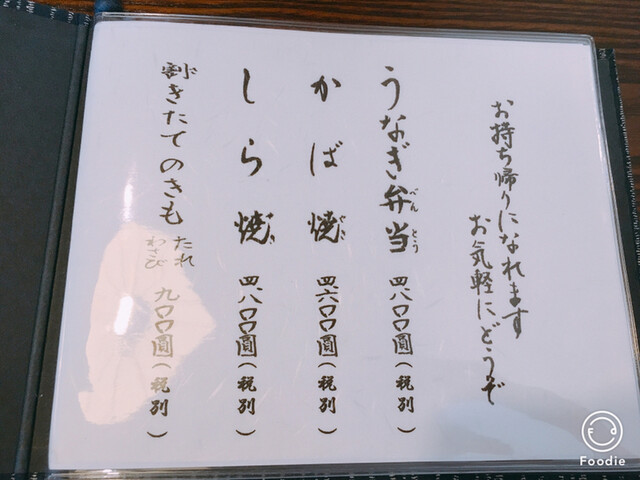 お持ち帰りになれます
お気軽にどうぞ
うなぎ弁当 四八〇〇圓(税別)
べんとう
かば焼 四六〇〇圓(税別)
やき
しら焼 四八〇〇圓(税別)
やき
割きたてのきも たれ わさび 九〇〇圓(税別)
Foodie